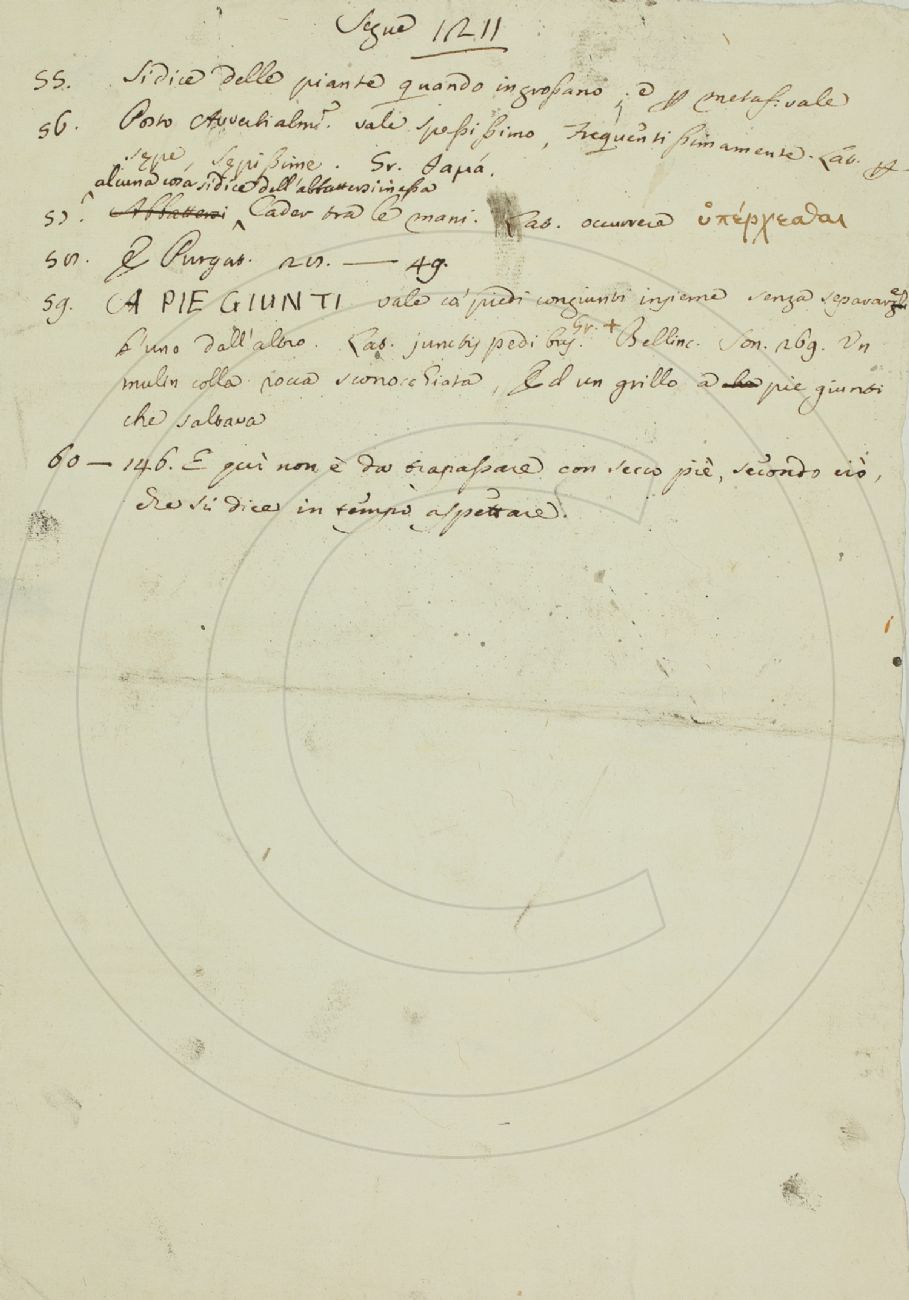 Segue 1211
55. Si dice delle piante quando ingrossano; e p metaf: vale
56. Posto Avverbialmte. vale spessissimo, frequentissimamente. Lat.
sępe, sępissime. Gr. θαμά.
alcuna cosa si dice dell'abbattersi in essa
57. Abbattersi Cader tra le mani. Lat. occurrere ὑπέρχεσθαι
58. E Purgat. 28. — 49.
59. A PIE GIUNTI vale co' piedi congiunti insieme senza separare
l'uno dall'altro. Lat. junctis pedibus. Gr. + Bellinc. Son. 269. Un
mulin colla rocca sconocchiata, E d un grillo a pie giunti
che saltava
60 — 146. E quì non è da trapassare con secco piè, secondo ciò,
che si dice in tempo aspettare.